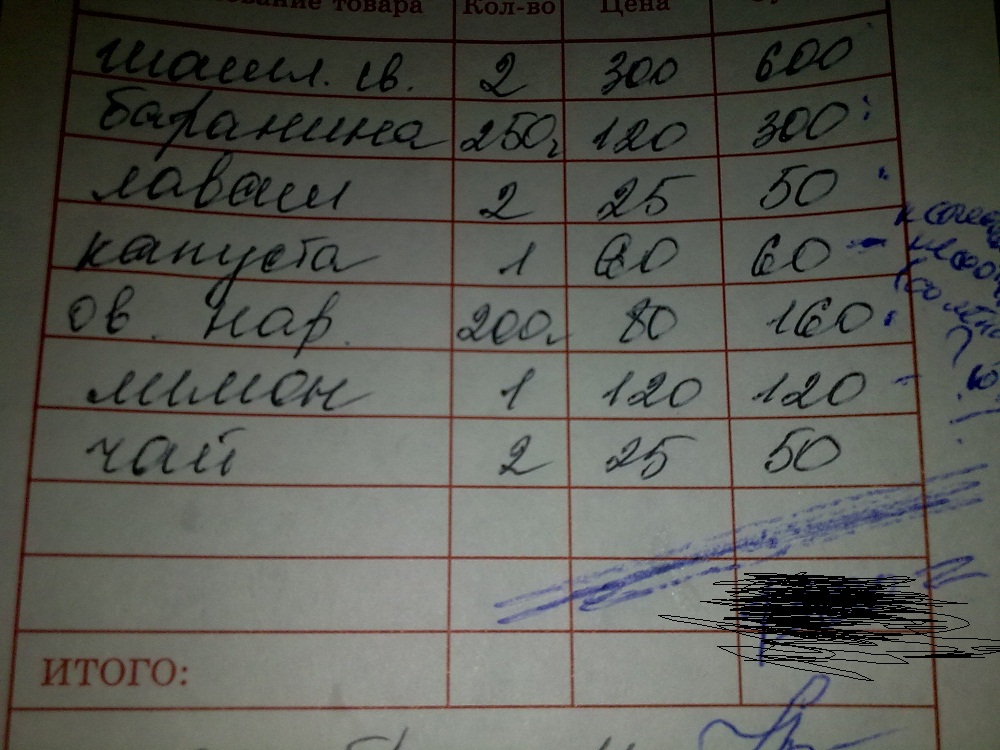 товара Кол-во Цена
шашл. св. 2 300 600
баранина 250г 120 300
лаваш 2 25 50
капуста 1 60 60
ов. нар. 200г 80 160
лимон 1 120 120
чай 2 25 50
ИТОГО: